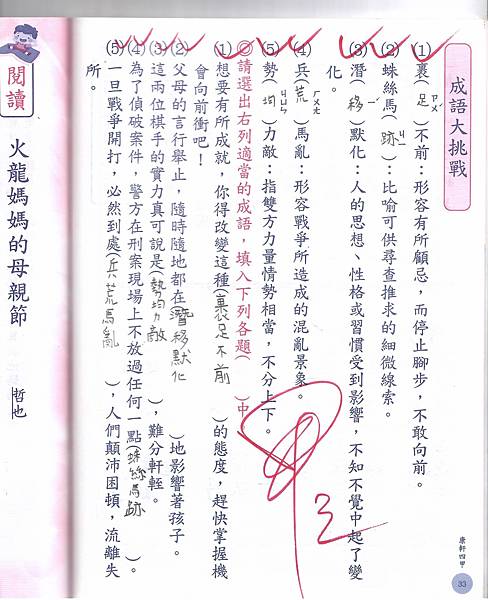 成語大挑戰
(1)裹(足)ㄗㄨˊ不前：形容有所顧忌，而停止腳步，不敢向前。
(2)蛛絲馬(跡)ㄐㄧ：比喻可供尋查推求的細微線索。
(3)潛(移)ㄧˊ默化：人的思想、性格或習慣受到影響，不知不覺中起了變
化。
(4)兵(荒)ㄏㄨㄤ馬亂：形容戰爭所造成的混亂景象。
(5)勢(均)ㄐㄩㄣ力敵：指雙方力量情勢相當，不分上下。
◎請選出右列適當的成語，填入下列各題(　)中
(1)想要有所成就，你得改變這種(裹足不前)的態度，趕快掌握機
會向前衝吧！
(2)父母的言行舉止，隨時隨地都在(潛移默化)地影響著孩子。
(3)這兩位棋手的實力真可說是(勢均力敵)，難分軒輊。
(4)為了偵破案件，警方在刑案現場上不放過任何一點(蛛絲馬跡)。
(5)一旦戰爭開打，必然到處(兵荒馬亂)，人們顛沛困頓，流離失
所。
甲
閱讀
火龍媽媽的母親節
哲也
康軒四甲
33